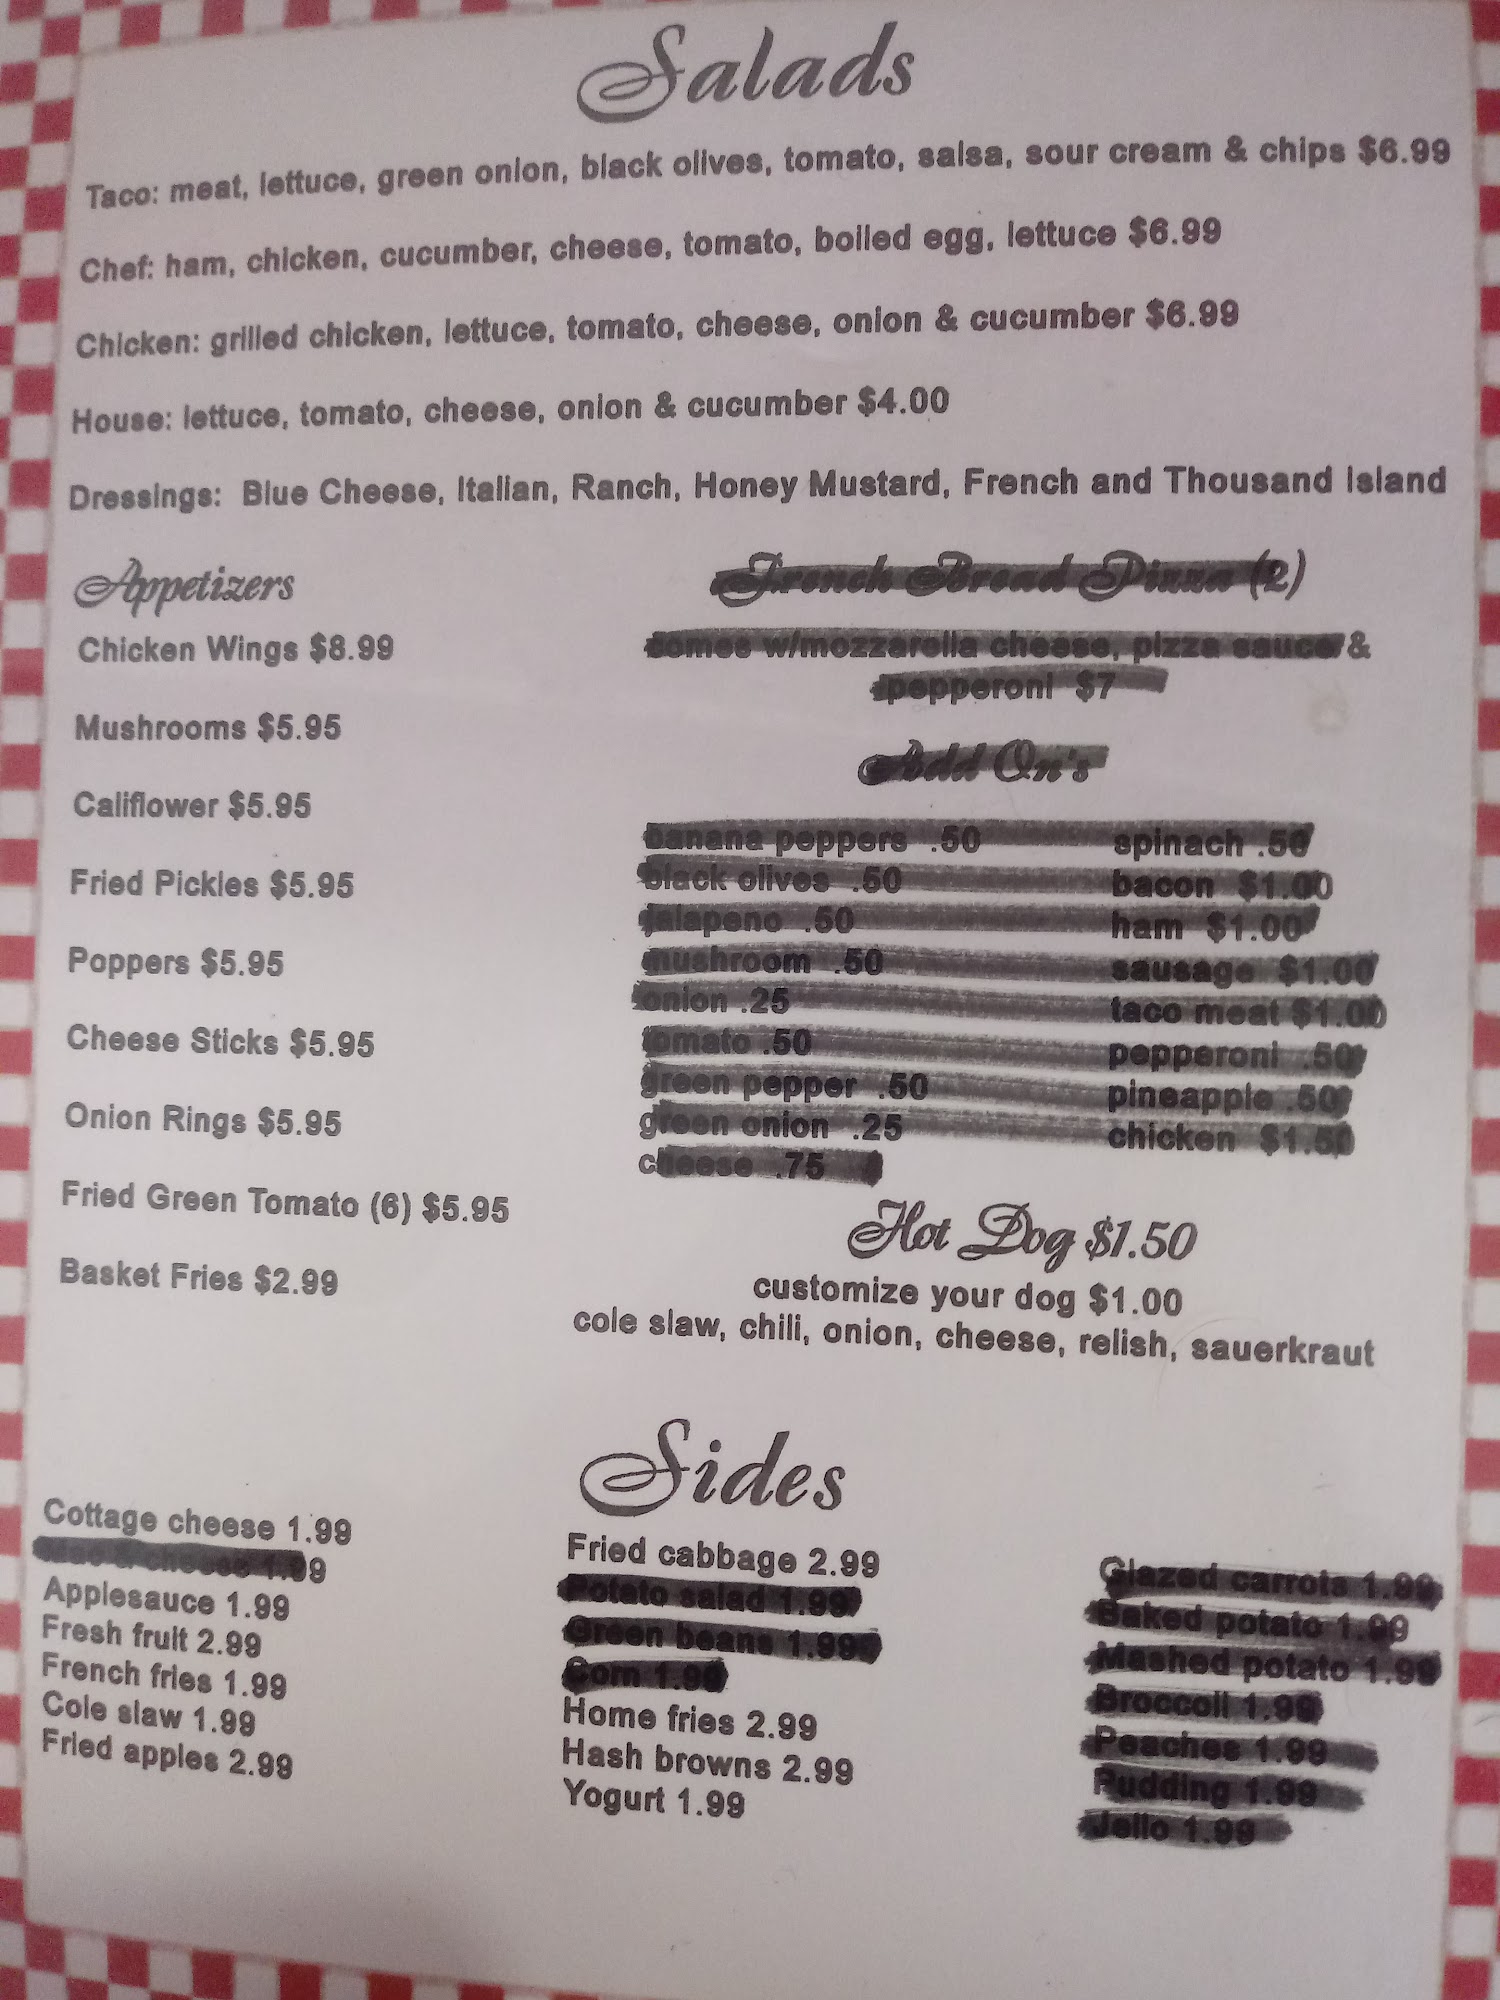 Salads
Taco: meat, lettuce, green onion, black olives, tomato, salsa, sour cream & chips $6.99
Chef: ham, chicken, cucumber, cheese, tomato, boiled egg, lettuce $6.99
Chicken: grilled chicken, lettuce, tomato, cheese, onion & cucumber $6.99
House: lettuce, tomato, cheese, onion & cucumber $4.00
Dressings: Blue Cheese, Italian, Ranch, Honey Mustard, French and Thousand Island
Appetizers
Chicken Wings $8.99
Mushrooms $5.95
Califlower $5.95
Fried Pickles $5.95
Poppers $5.95
Cheese Sticks $5.95
Onion Rings $5.95
Fried Green Tomato (6) $5.95
Basket Fries $2.99
French Bread Pizza (2)
comes w/mozzarella cheese, pizza sauce &
pepperoni $7
Add On's
banana peppers .50
black olives .50
jalapeno .50
mushroom .50
onion .25
tomato .50
green pepper .50
green onion .25
cheese .75
spinach .50
bacon $1.00
ham $1.00
sausage $1.00
taco meat $1.00
pepperoni .50
pineapple .50
chicken $1.50
Hot Dog $1.50
customize your dog $1.00
cole slaw, chili, onion, cheese, relish, sauerkraut
Sides
Cottage cheese 1.99
Mac & cheese 1.99
Applesauce 1.99
Fresh fruit 2.99
French fries 1.99
Cole slaw 1.99
Fried apples 2.99
Fried cabbage 2.99
Potato salad 1.99
Green beans 1.99
Corn 1.99
Home fries 2.99
Hash browns 2.99
Yogurt 1.99
Glazed carrots 1.99
Baked potato 1.99
Mashed potato 1.99
Broccoli 1.99
Peaches 1.99
Pudding 1.99
Jello 1.99